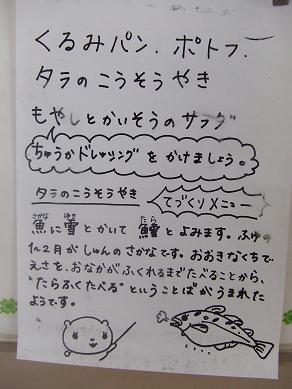 くるみパン．ポトフ．
タラのこうそうやき
もやしとかいそうのサラダ
ちゅうかドレッシングをかけましょう。
タラのこうそうやき
てづくりメニュー
さかな ゆき たら
魚に雪とかいて 鱈とよみます。ふゆの
1~2月がしゅんのさかなです。おおきなくちで
えさを、おなかがふくれるまでたべることから、
"たらふくたべる"ということばがうまれた
ようです。